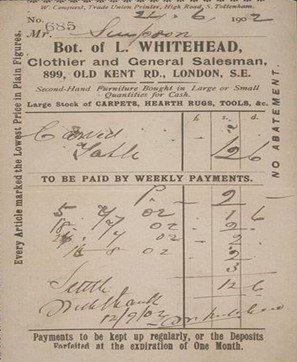 W. Campbell, Trade Union Printer, High Road, S. Tottenham.
No. 685
24. 6. 1902
Mr. Simpson
Bot. of L. WHITEHEAD,
Clothier and General Salesman,
899, OLD KENT RD., LONDON, S.E.
Second-Hand Furniture Bought in Large or Small
Quantities for Cash.
Large Stock of CARPETS, HEARTH RUGS, TOOLS, &c.
s. d.
Table 12 6
TO BE PAID BY WEEKLY PAYMENTS.
P 2
5 7 02 1 6
18 7 02 2
02 2
8 02 2
3
Settld 12 6
With thanks
12/9/02
Payments to be kept up regularly, or the Deposits
Forfeited at the expiration of One Month.
Every Article marked the Lowest Price in Plain Figures.
NO ABATEMENT.